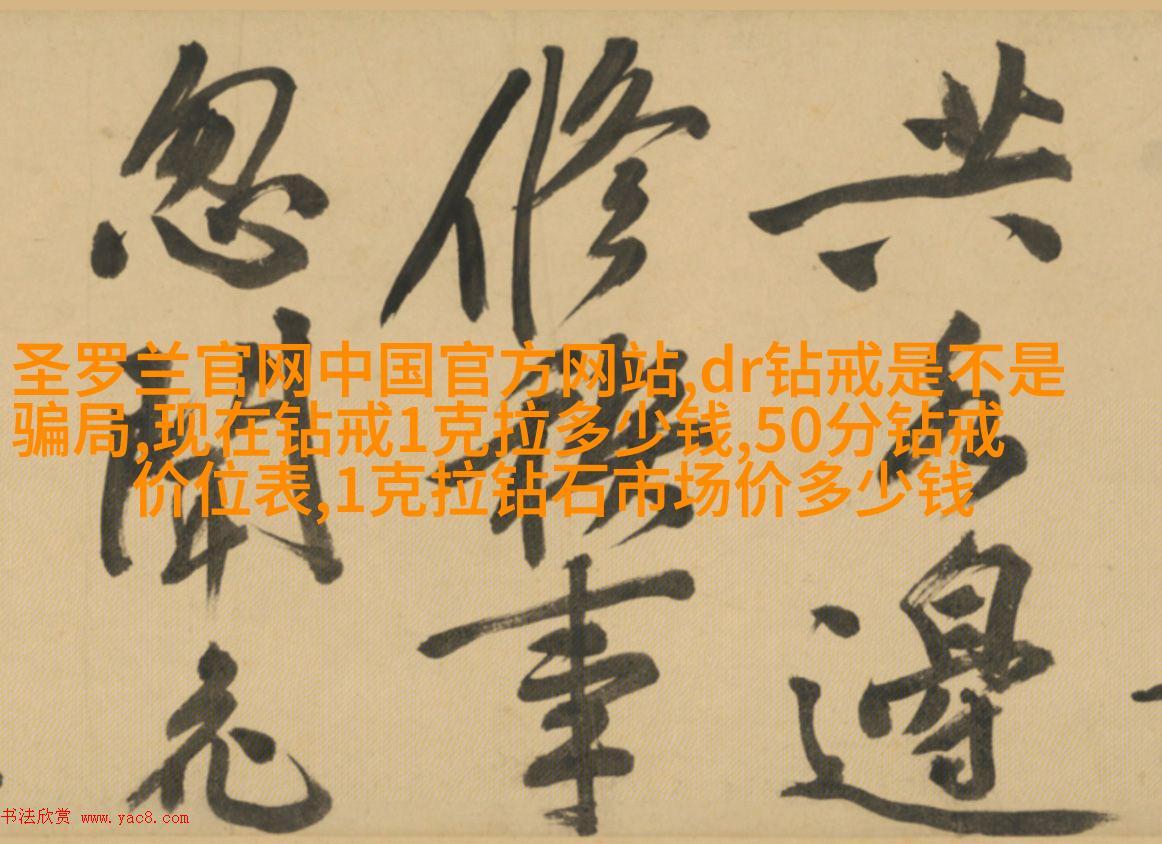 圣罗兰官网中国官方网站,dr钻戒是不是
骗局,现在钻戒1克拉多少钱,50分钻戒
价位表,1克拉钻石市场价多少钱
共
修禊事
忽聞
书法欣赏 www.yac8.com